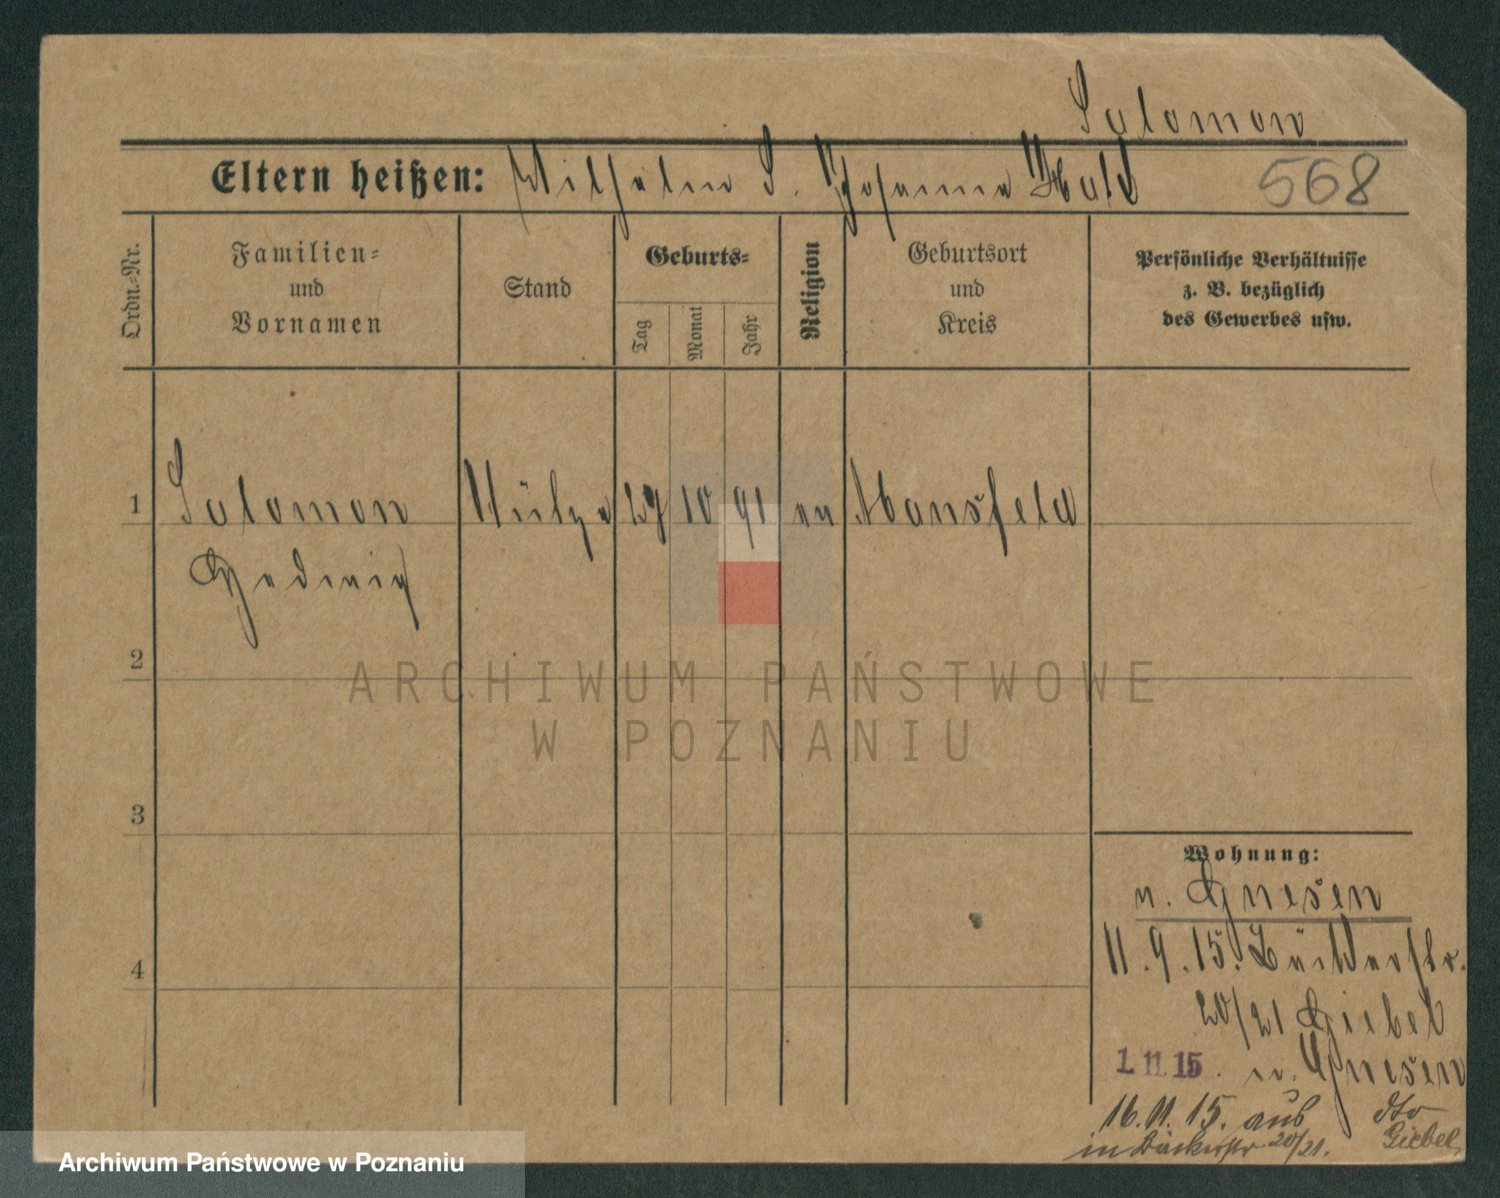 Salomon
Eltern heißen: Wilhelm S. Johanna
568
Ordn.-Nr.
Familien-
und
Vornamen
Stand
Geburts-
Tag
Monat
Jahr
Religion
Geburtsort
und
Kreis
Persönliche Verhältnisse
z. B. bezüglich
des Gewerbes usw.
1 Salomon Stütze 27 10 91 ev Mansfeld
Hedwig
2
3
4
Wohnung:
n. Gnesen
11.9.15. Bäckerstr.
20/21 Giebel
1. 11. 15. n. Gnesen
16.11.15. aus dto
in Bäckerstr 20/21. Giebel
ARCHIWUM PAŃSTWOWE
W POZNANIU
Archiwum Państwowe w Poznaniu